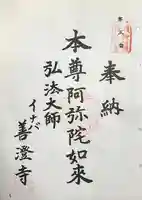 奉納
本尊阿弥陀如来
弘法大師
イナバ
善澄寺